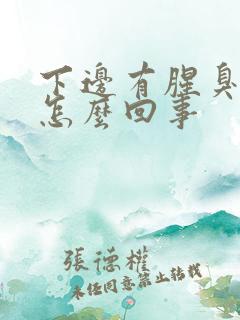 下邊有腥臭
怎麼回事
張德權
未經同意禁止轉載